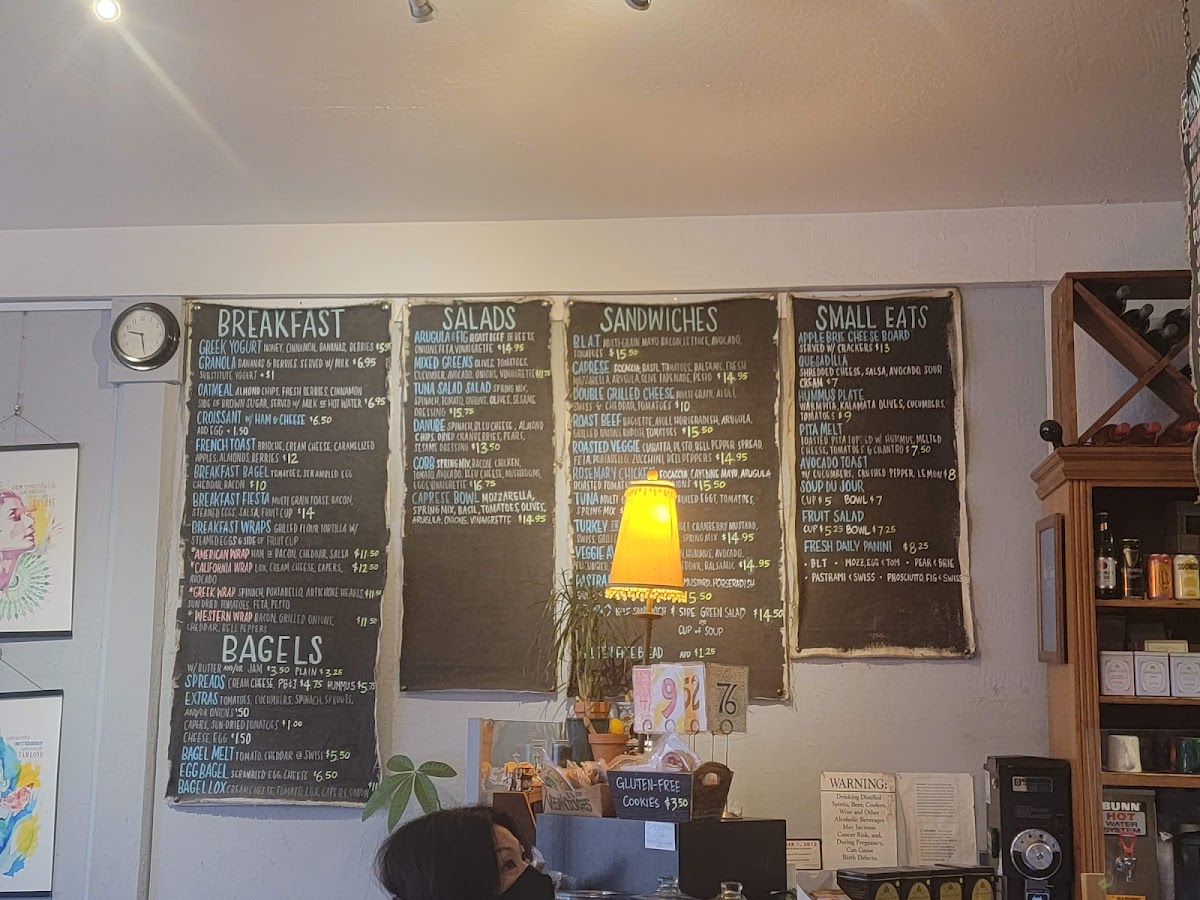 BREAKFAST
GREEK YOGURT HONEY, CINNAMON, BANANAS, BERRIES
GRANOLA BANANAS & BERRIES SERVED W/ MILK $6.95
SUBSTITUTE YOGURT + $1
OATMEAL ALMOND CHIPS, FRESH BERRIES, CINNAMON
SIDE OF BROWN SUGAR, SERVED W/ MILK OR HOT WATER $6.95
CROISSANT W/ HAM & CHEESE $6.50
ADD EGG + 1.50
FRENCH TOAST BRIOCHE, CREAM CHEESE, CARAMELIZED
APPLES, ALMONDS, BERRIES $12
BREAKFAST BAGEL TOMATOES, SCRAMBLED EGG
CHEDDAR, BACON $10
BREAKFAST FIESTA MULTI GRAIN TOAST, BACON,
STEAMED EGGS, SALSA, FRUIT CUP $14
BREAKFAST WRAPS GRILLED FLOUR TORTILLA W/
STEAMED EGGS & SIDE OF FRUIT CUP
*AMERICAN WRAP HAM OR BACON, CHEDDAR, SALSA $11.50
*CALIFORNIA WRAP LOX, CREAM CHEESE, CAPERS, $12.50
AVOCADO
*GREEK WRAP SPINACH, PORTABELLO, ARTICHOKE HEARTS
SUN DRIED TOMATOES, FETA, PESTO
*WESTERN WRAP BACON, GRILLED ONIONS, $11.50
CHEDDAR, BELL PEPPERS
BAGELS
W/ BUTTER AND/OR JAM $3.50 PLAIN $3.25
SPREADS CREAM CHEESE, PB&J $4.75 HUMMUS $5.75
EXTRAS TOMATOES, CUCUMBERS, SPINACH, SPROUTS,
AND/OR ONIONS $.50
CAPERS, SUN-DRIED TOMATOES $1.00
CHEESE, EGG $1.50
BAGEL MELT TOMATO, CHEDDAR OR SWISS $5.50
EGG BAGEL SCRAMBLED EGG, CHEESE $6.50
BAGEL LOX CREAM CHEESE, TOMATO, LOX, CAPERS, ONION
SALADS
ARUGULA & FIG ROAST BEEF OR BEETS,
ONIONS, FETA, VINAIGRETTE $14.95
MIXED GREENS OLIVES, TOMATOES,
CUCUMBER, AVOCADO, ONIONS, VINAIGRETTE
TUNA SALAD SALAD SPRING MIX,
SPINACH, TOMATO, ONIONS, OLIVES, SESAME
DRESSING $15.75
DANUBE SPINACH, BLEU CHEESE, ALMOND
CHIPS, DRIED CRANBERRIES, PEARS,
SESAME DRESSING $13.50
COBB SPRING MIX, BACON, CHICKEN,
TOMATO, AVOCADO, BLEU CHEESE, MUSHROOMS,
EGGS, VINAIGRETTE $16.75
CAPRESE BOWL MOZZARELLA,
SPRING MIX, BASIL, TOMATOES, OLIVES,
ARUGULA, ONIONS, VINAIGRETTE $14.95
SANDWICHES
BLAT MULTI-GRAIN MAYO BACON, LETTUCE, AVOCADO,
TOMATOES $15.50
CAPRESE FOCACCIA, BASIL TOMATOES, BALSAMIC, FRESH
MOZZARELLA, ARUGULA, OLIVE TAPENADE, PESTO $14.95
DOUBLE GRILLED CHEESE MULTI GRAIN, AIOLI,
SWISS & CHEDDAR, TOMATOES $10
ROAST BEEF BAGUETTE, AIOLI, HORSERADISH, ARUGULA,
GRILLED ONIONS, RADISH, TOMATOES $15.50
ROASTED VEGGIE CIABATTA, PESTO, BELL PEPPER, SPREAD,
FETA, PORTABELLO, ZUCCHINI, BELL PEPPERS $14.95
ROSEMARY CHICKEN FOCACCIA, CAYENNE MAYO, ARUGULA
ROASTED TOMATOES ONIONS $15.50
TUNA BOILED EGGS, TOMATOES,
SPRING MIX
TURKEY CRANBERRY MUSTARD,
SWISS SPRING MIX $14.95
VEGGIE HUMMUS, AVOCADO,
CHEDDAR, BALSAMIC $14.95
PASTRAMI MUSTARD, HORSERADISH
15.50
SANDWICH & SIDE GREEN SALAD $14.50
OR
CUP OF SOUP
BREAD ADD $1.25
SMALL EATS
APPLE BRIE CHEESE BOARD
SERVED W/ CRACKERS $13
QUESADILLA
SHREDDED CHEESE, SALSA, AVOCADO, SOUR
CREAM $7
HUMMUS PLATE
WARM PITA, KALAMATA OLIVES, CUCUMBERS,
TOMATOES $9
PITA MELT
TOASTED PITA TOPPED W/ HUMMUS, MELTED
CHEESE, TOMATOES & CILANTRO $7.50
AVOCADO TOAST
W/ CUCUMBERS, CRUSHED PEPPER, LEMON $8
SOUP DU JOUR
CUP $5 BOWL $7
FRUIT SALAD
CUP $5.25 BOWL $7.25
FRESH DAILY PANINI $8.25
• BLT • MOZZ, EGG & TOM • PEAR & BRIE
• PASTRAMI & SWISS • PROSCIUTTO, FIG & SWISS
9
52
76
GLUTEN-FREE
COOKIES $3.50
WARNING:
Drinking Distilled
Spirits, Beer, Coolers,
Wine and Other
Alcoholic Beverages
May Increase
Cancer Risk, and,
During Pregnancy,
Can Cause
Birth Defects.
BUNN
HOT
WATER
SYSTEM